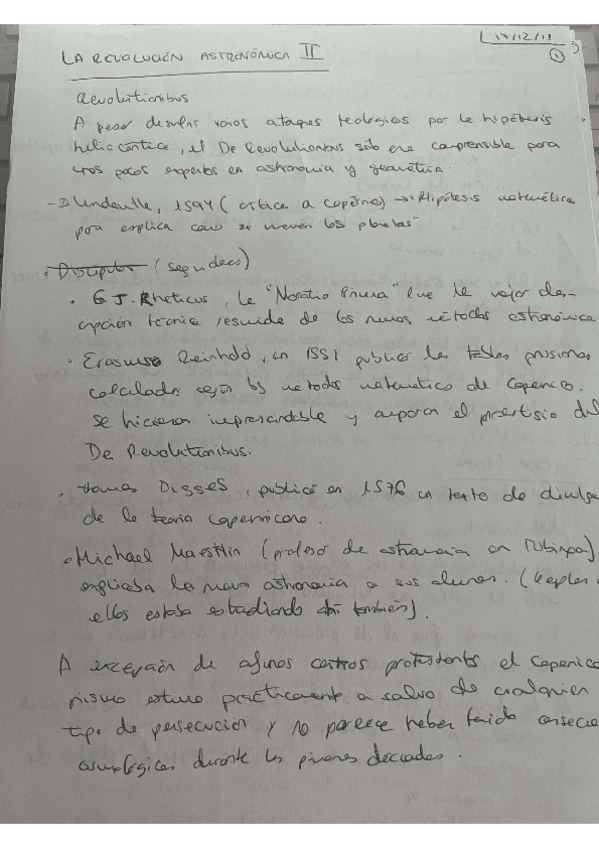 17/12/18
①
LA REVOLUCIÓN ASTRONÓMICA II
Revolutionibus
A pesar de sufrir varios ataques teologicos por la hipótesis
heliocéntrica, el De Revolutionibus sólo era comprensible para
unos pocos expertos en astronomia y geometria.
(critica a copérnico) → "Hipótesis matemática
para explicar como se mueven los planetas"
Discipulos (seguidores)
· G. J. Rheticus, la "Narratio Prima" fue la mejor des-
cripción técnica resumida de los nuevos métodos astronómicos
· Erasmus Reinhold, en 1551 publica las tablas prusianas
calculadas según los métodos matemáticos de Copernico.
se hicieron imprescindible y aumentaron el prestigio del
De Revolutionibus.
· Thomas Digges, publicó en 1576 un texto de divulga
de la teoría copernicana.
· Michael Maestlin (profesor de astronomia en Tubinga)
explicaba la nueva astronomia a sus alumnos. (Kepler
ellos estaba estudiando ahí también).
A excepción de algunos centros protestantes el Copernica
nismo estuvo prácticamente a salvo de cualquier
tipo de persecución y no parece haber tenido consecue
cosmológicas durante las primeras decadas.